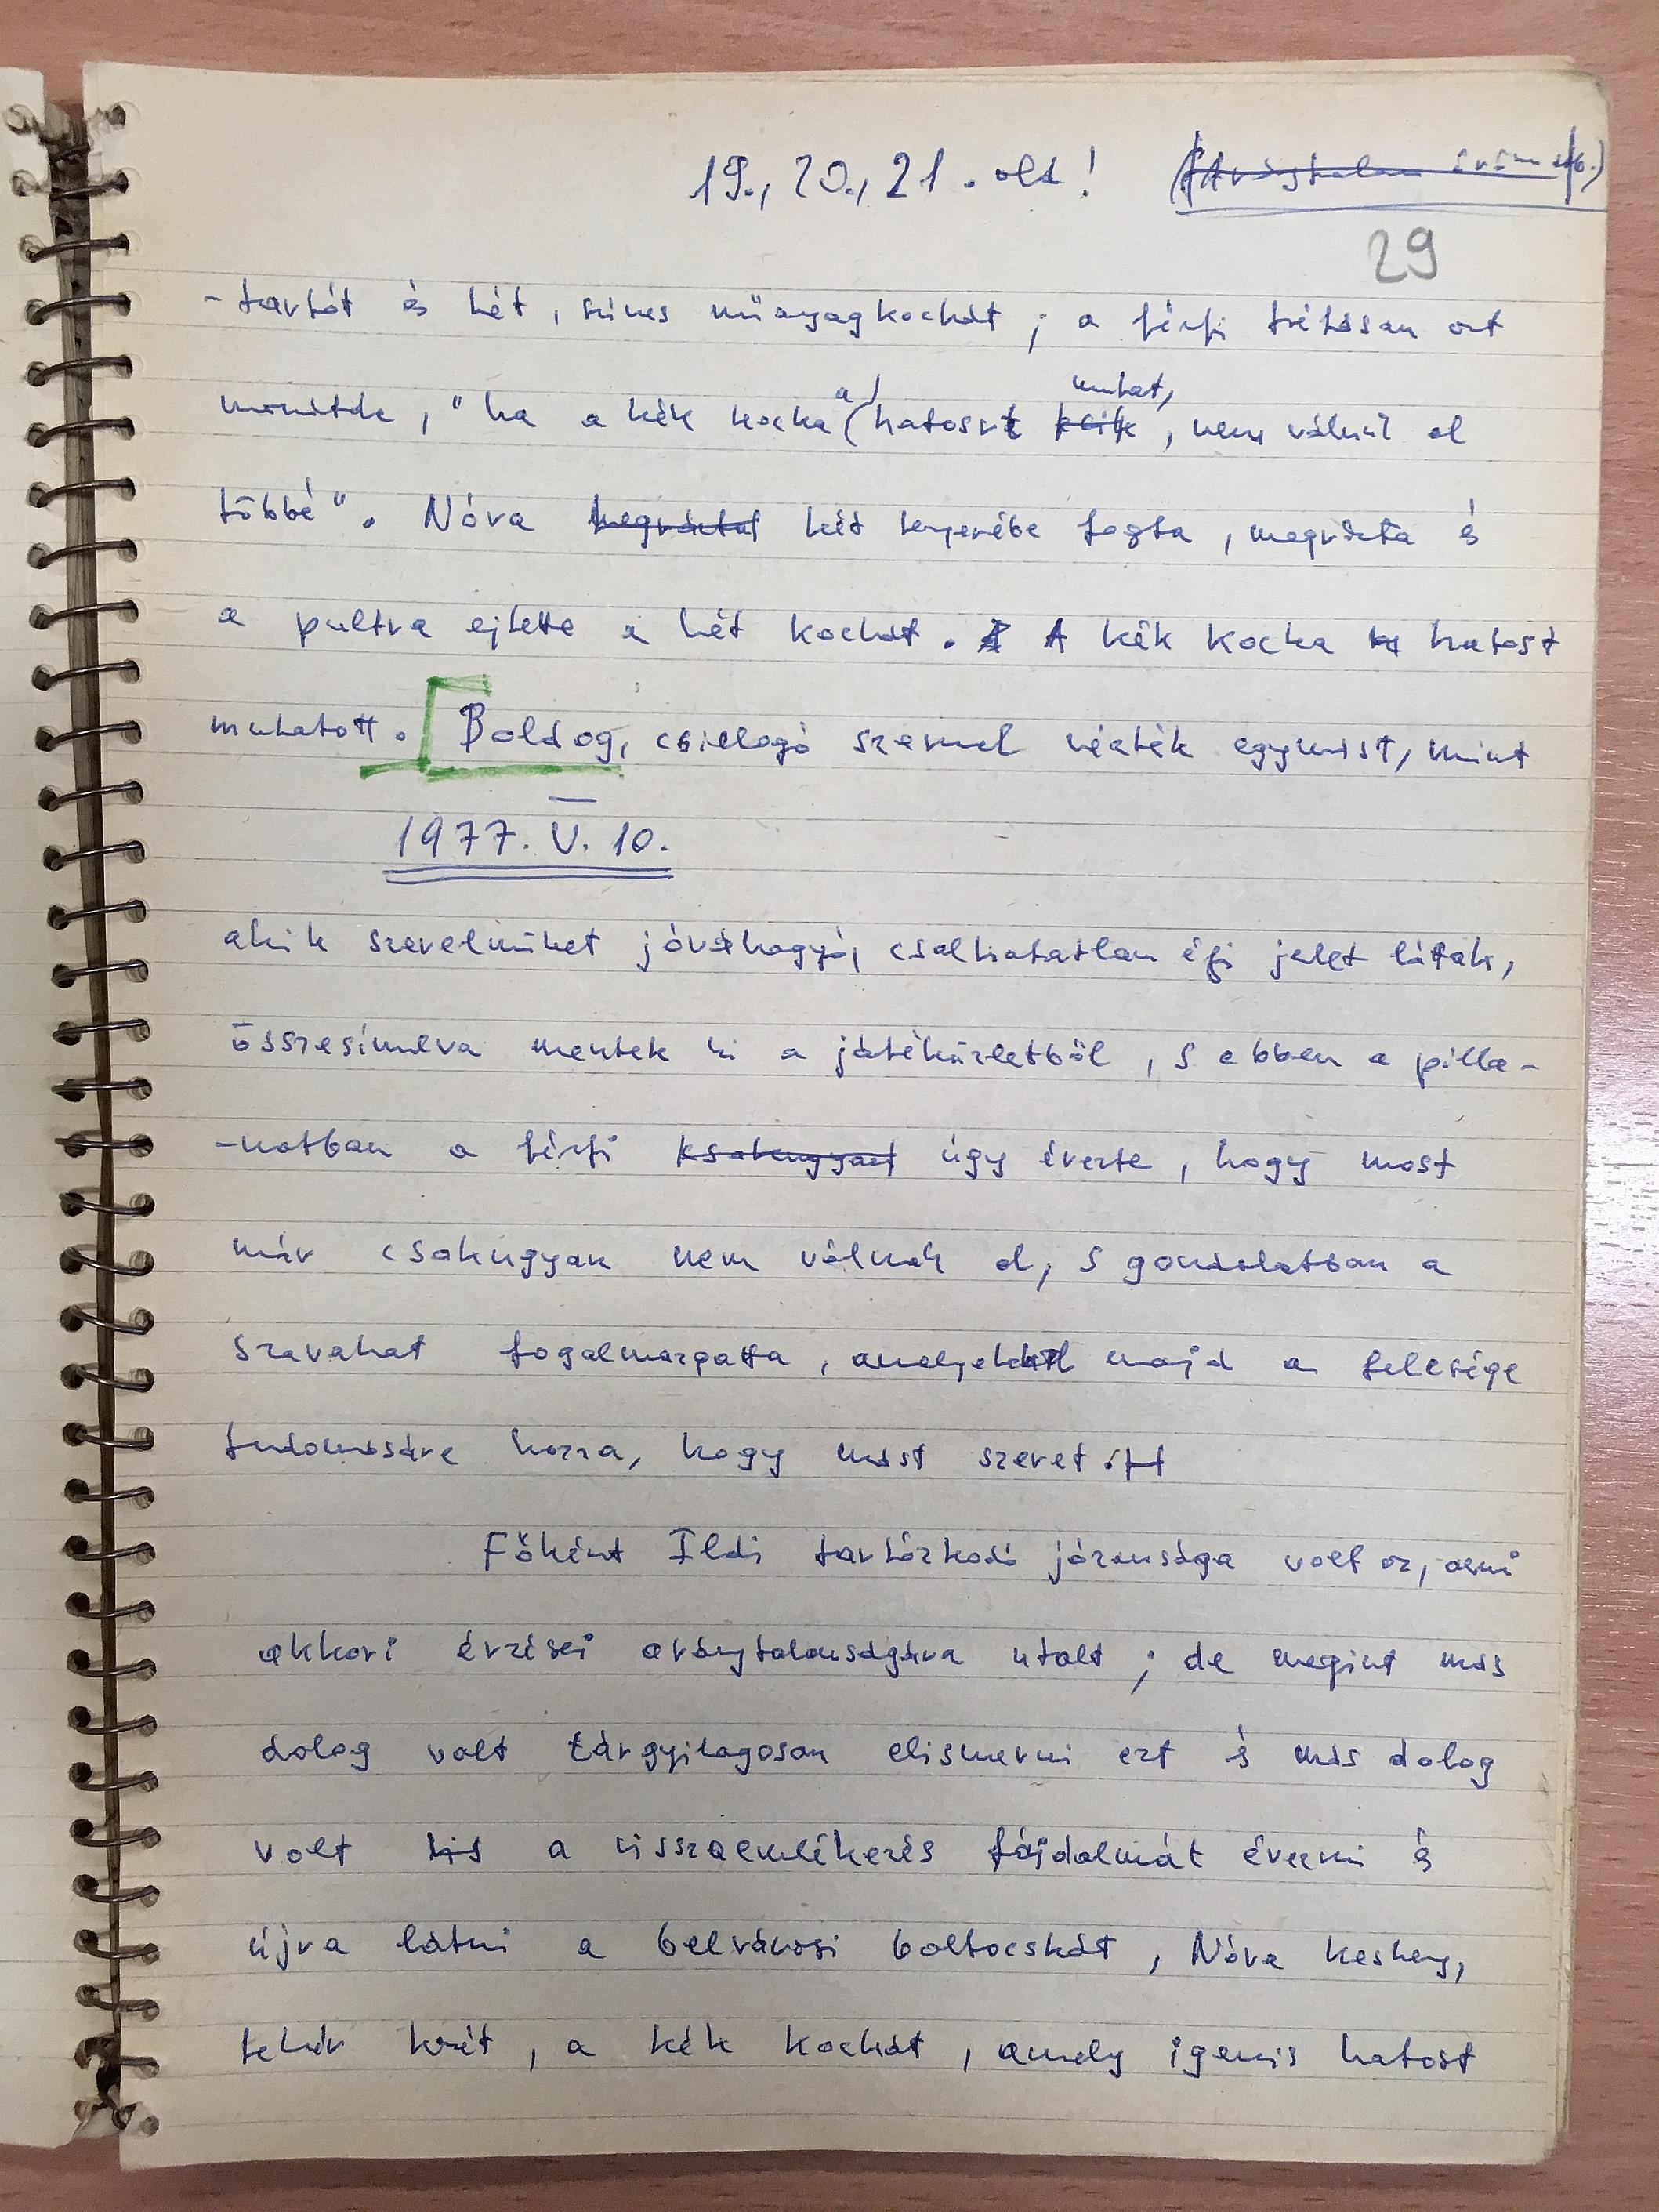 19., 20., 21. old!
29
-tartót és hét, színes műanyagkockát; a férfi tréfásan azt
mondta, "ha a kék kocka (a) hatost kcik mutat, nem válunk el
többé". Nóra megrázta két tenyerébe fogta, megrázta és
a pultra ejtette a hét kockát. A kék kocka hatost
mutatott. Boldog, csillogó szemmel nézték egymást, mint
1977. V. 10.
akik szerelmüket jóváhagyó, csalhatatlan égi jelet láttak,
összesimulva mentek ki a játéküzletből, s ebben a pilla-
-natban a férfi csakugyan úgy érezte, hogy most
már csakugyan nem válnak el, s gondolatban a
szavakat fogalmazgatta, amelyekkel majd a felesége
tudomására hozza, hogy mást szeret.
Főként Ildi tartózkodó józansága volt az, ami
akkori érzései aránytalanságára utalt; de megint más
dolog volt tárgyilagosan elismerni ezt és más dolog
volt a visszaemlékezés fájdalmát érezni és
újra látni a belvárosi boltocskát, Nóra keskeny,
fehér kezét, a kék kockát, amely igenis hatost